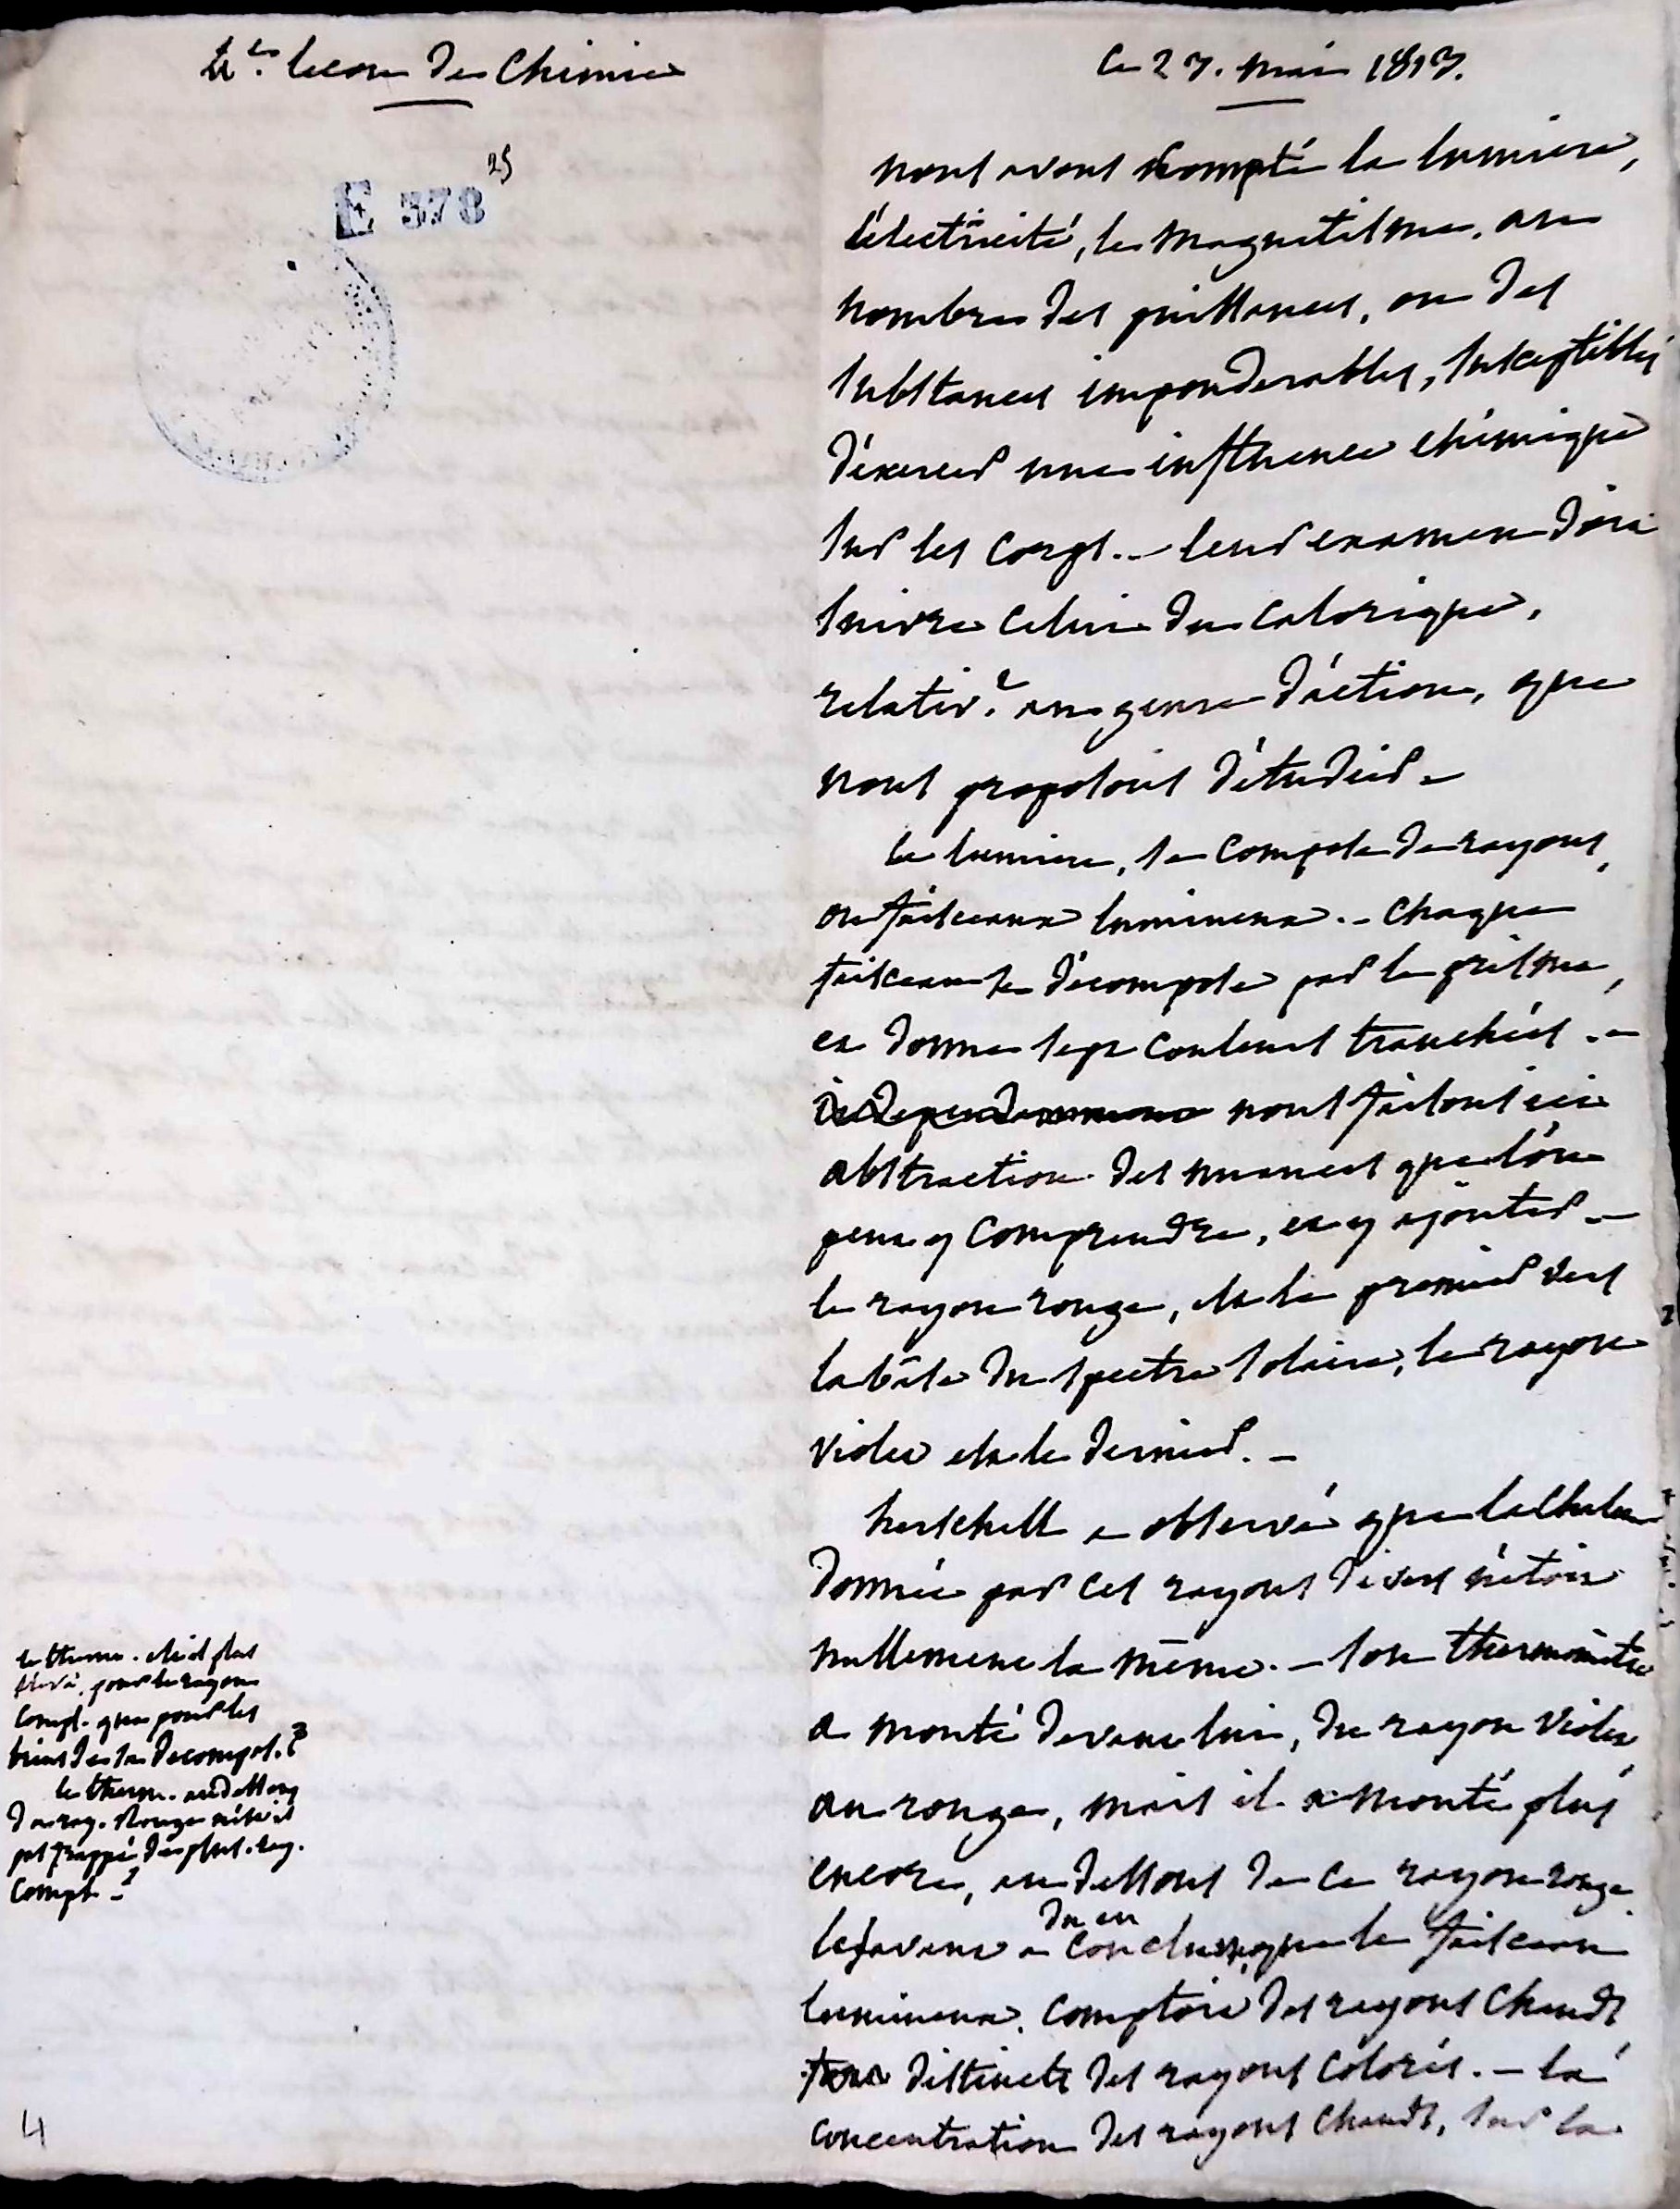 leçon de Chimie
le 27. mai 1813.
25
E 378
nous avons compté la lumière,
l'électricité, le magnétisme, au
nombre des puissances, ou des
substances impondérables, susceptibles
d'exercer une influence chimique
sur les corps. - leur examen doit
suivre celui du calorique,
relativ.t au genre d'action, que
nous proposons d'étudier -
la lumière, se compose de rayons,
ou faisceaux lumineux. - chaque
faisceau se décompose par le prisme,
et donne sept couleurs tranchées. -
independamment nous faisons ici
abstraction des nuances que l'on
peut y comprendre, et y ajouter -
le rayon rouge, est le premier vers
la bâse du spectre solaire, le rayon
violet est le dernier. -
herschell a observé que la chaleur
donnée par ces rayons divers n'étoit
nullement la même. - son thermomètre
a monté devant lui, du rayon violet
au rouge, mais il a monté plus
encore, au dessous de ce rayon rouge
le savant a conclu que le faisceau
du en
lumineux, comptoit des rayons chauds
distincts des rayons colorés. - la
concentration des rayons chauds, sur la
le therm. est-il plus
élevé, pour le rayon
compl. que pour les
de sa décompos.?
le therm. au dessous
du ray. rouge n'est-il
pas frappé de plus. ray.
compl. ?
4